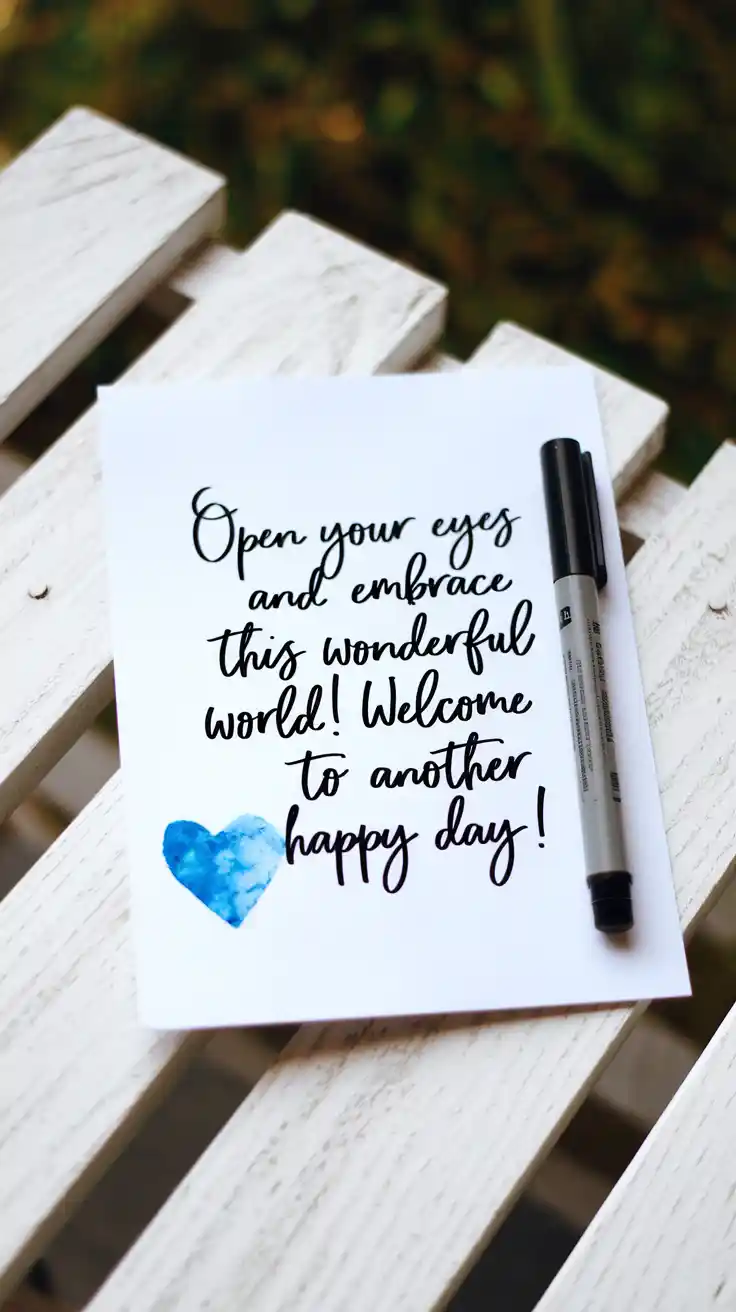 Open your eyes
and embrace
this wonderful
world! Welcome
to another
happy day!